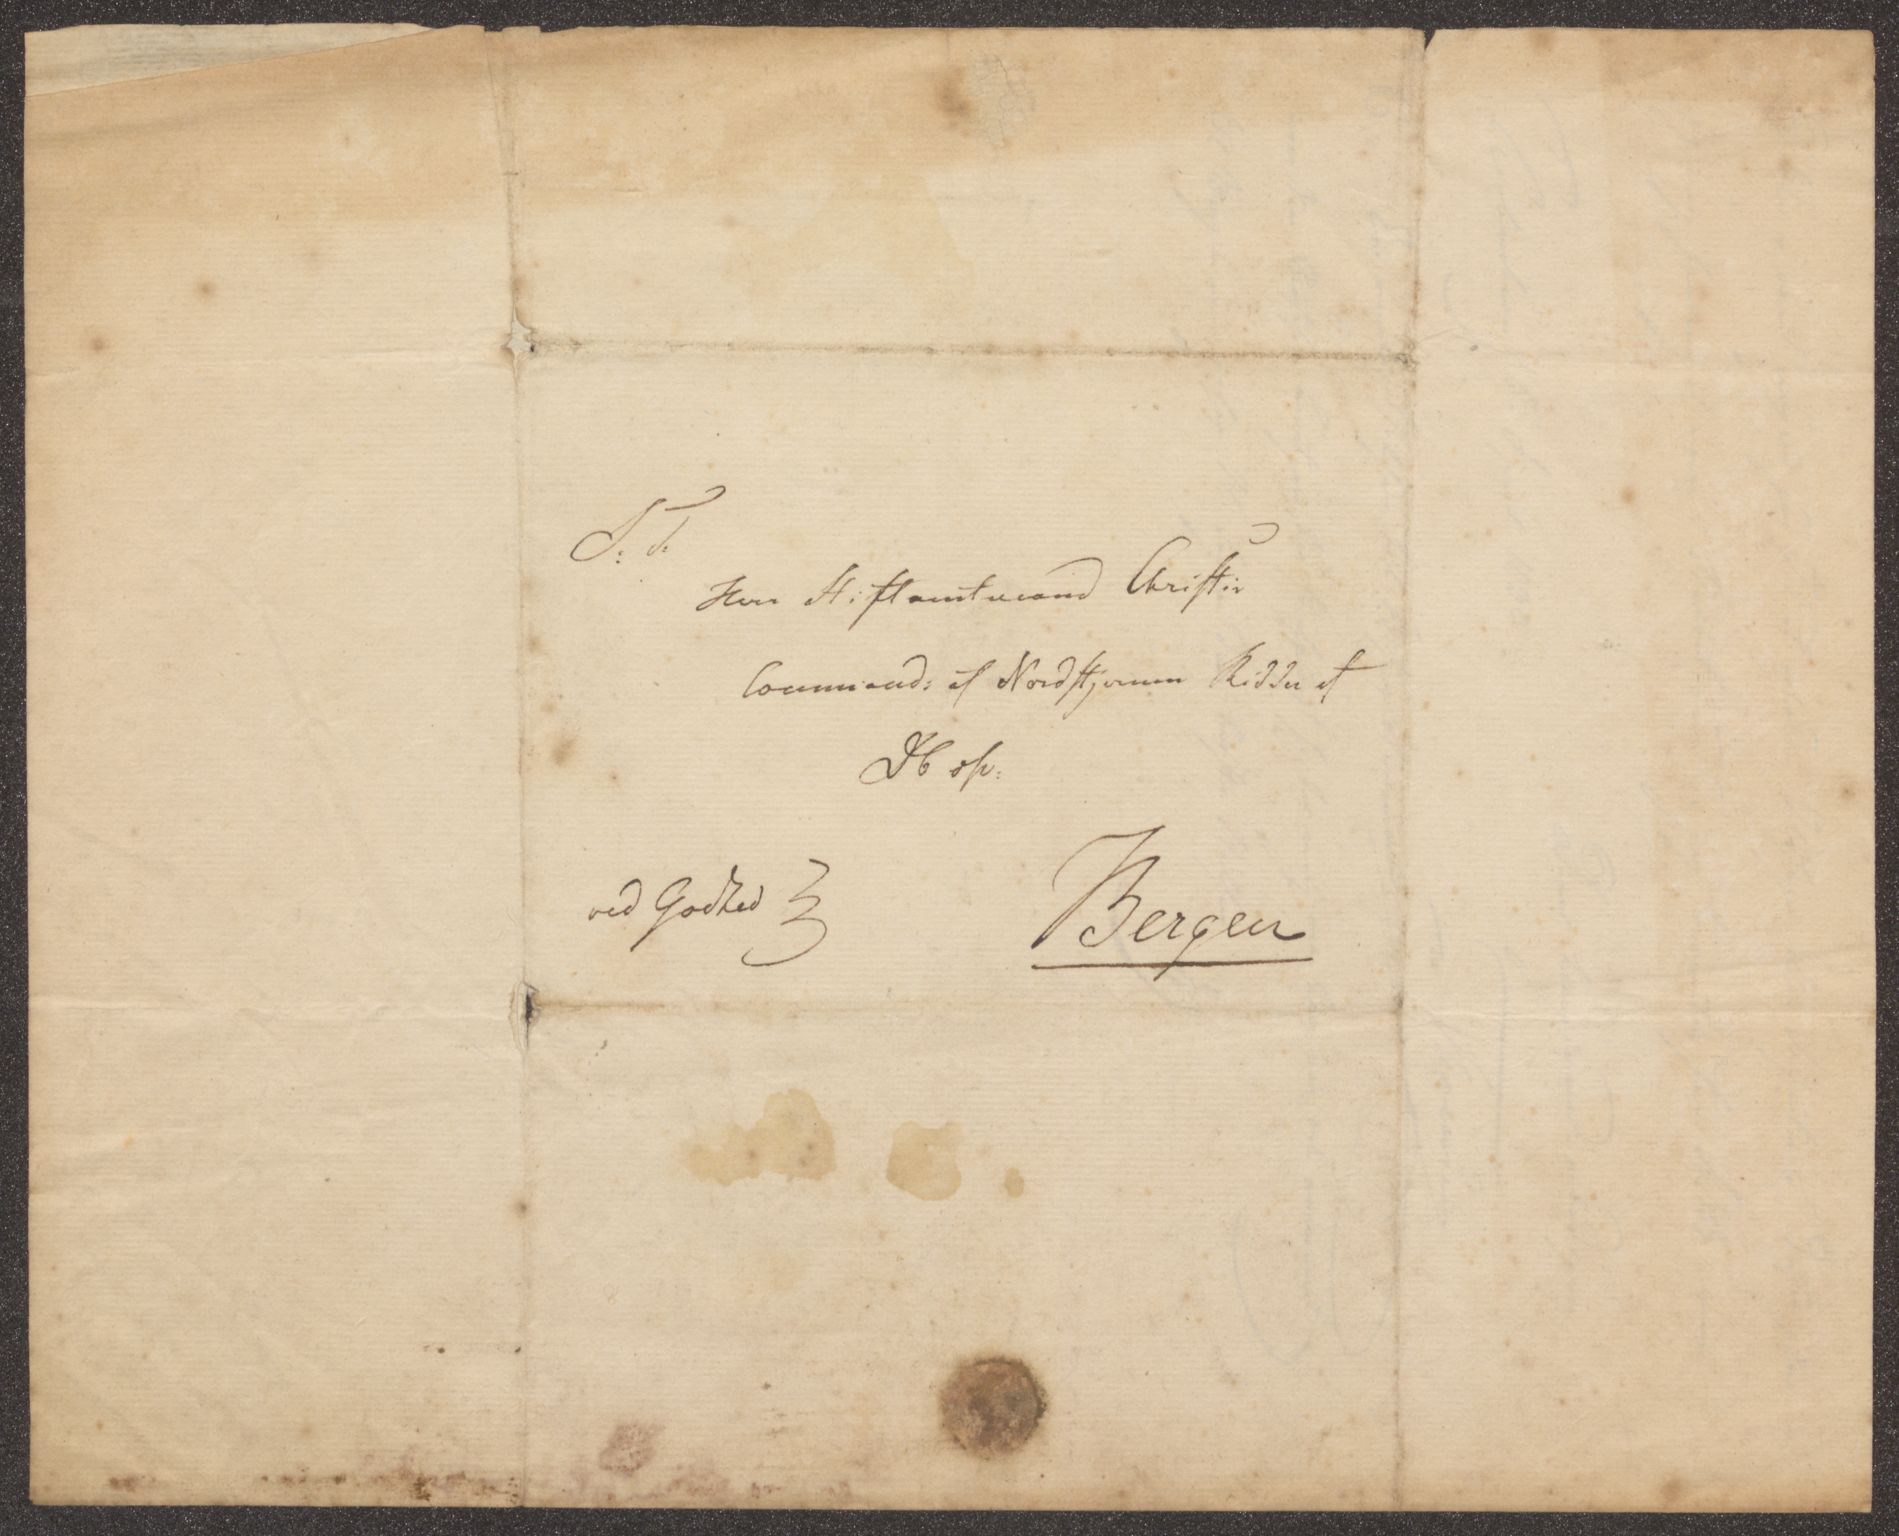 S. T.
Herr Stiftamtmand Christie
Command: af Nordstjernen Ridder af
D
ved Godhed
Bergen